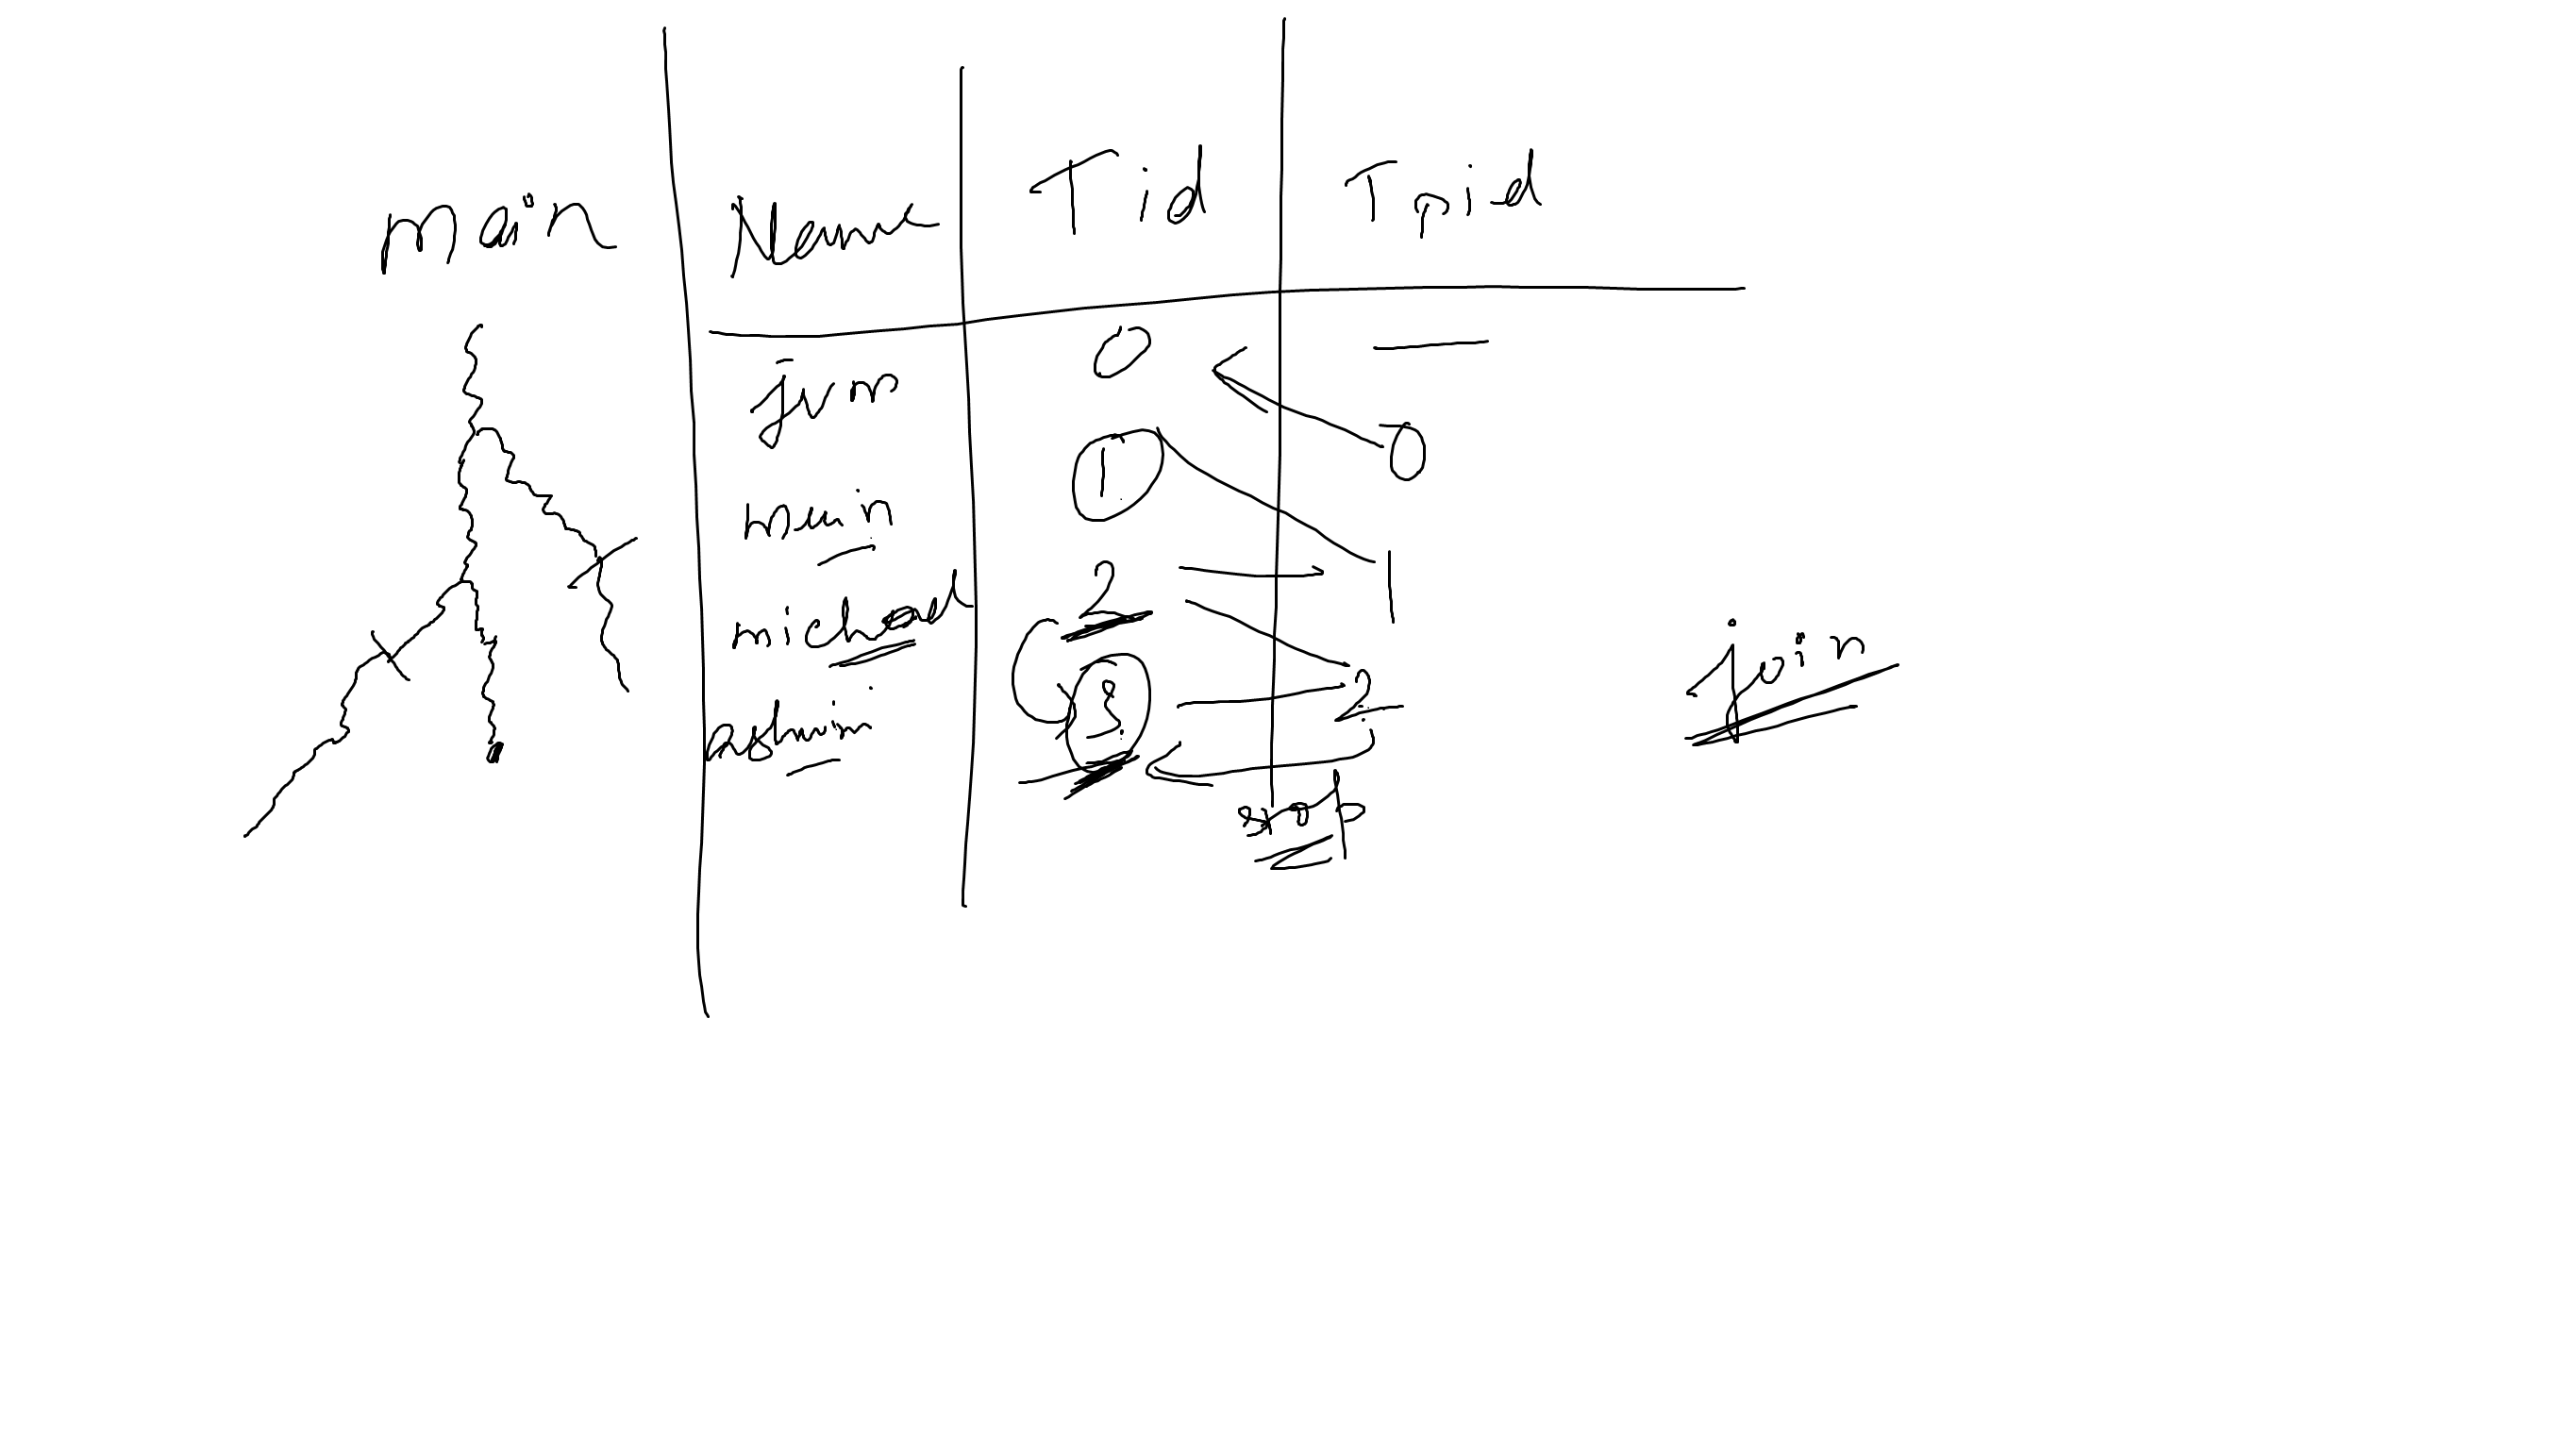 main
Name Tid Tpid
jvm 0 —
main 1 0
michael 2 1
ashwin 3 2
stop
join